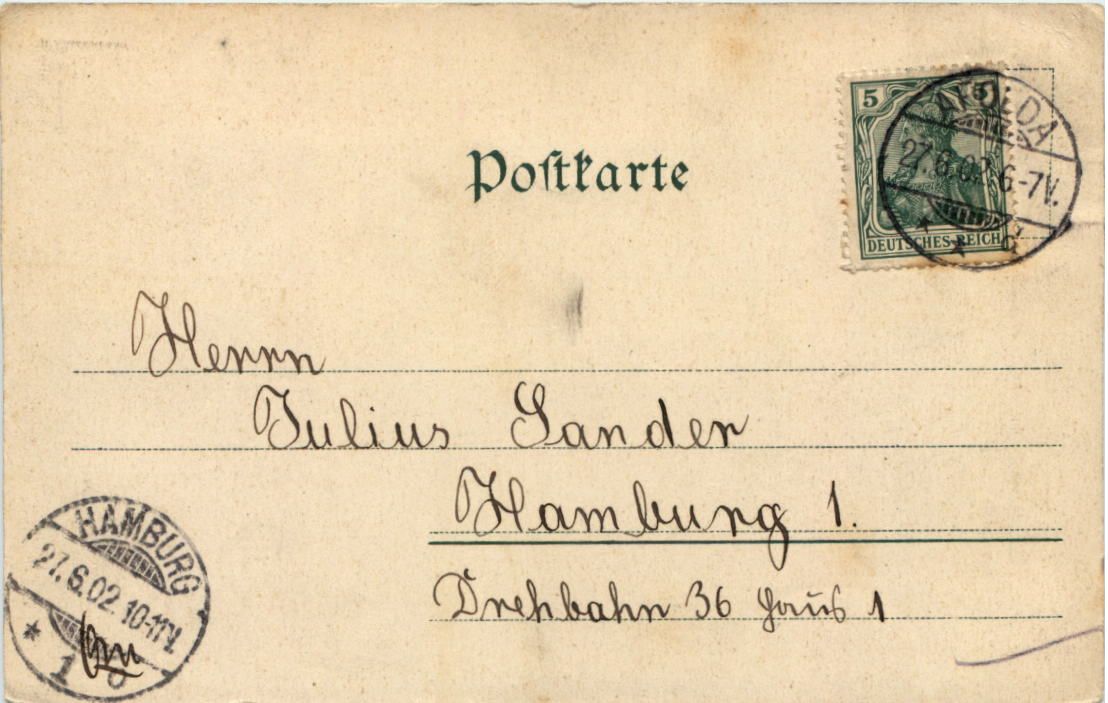 Poſtkarte
5
DEUTSCHES REICH
APOLDA
27.6.02 6-7V.
Herrn
Julius Sander
Hamburg 1.
Drehbahn 36 Haus 1
HAMBURG
27.6.02. 10-11V.
* 1